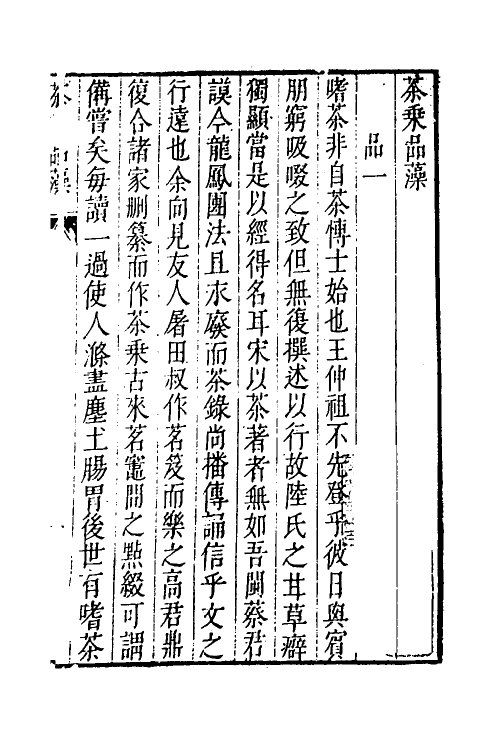 茶乘品藻
品一
嗜茶非自茶愽士始也王仲祖不先登乎彼日與賓
朋窮吸啜之致但無復撰述以行故陸氏之甘草癖
獨顯當是以經得名耳宋以茶著者無如吾閩蔡君
謨今龍鳳團法且永廢而茶錄尚播傳誦信乎文之
行遠也余向見友人屠田叔作茗笈而樂之高君鼎
復合諸家刪纂而作茶乘古來茗竈間之點綴可謂
備嘗矣每讀一過使人滌盡塵土腸胃後世有嗜茶